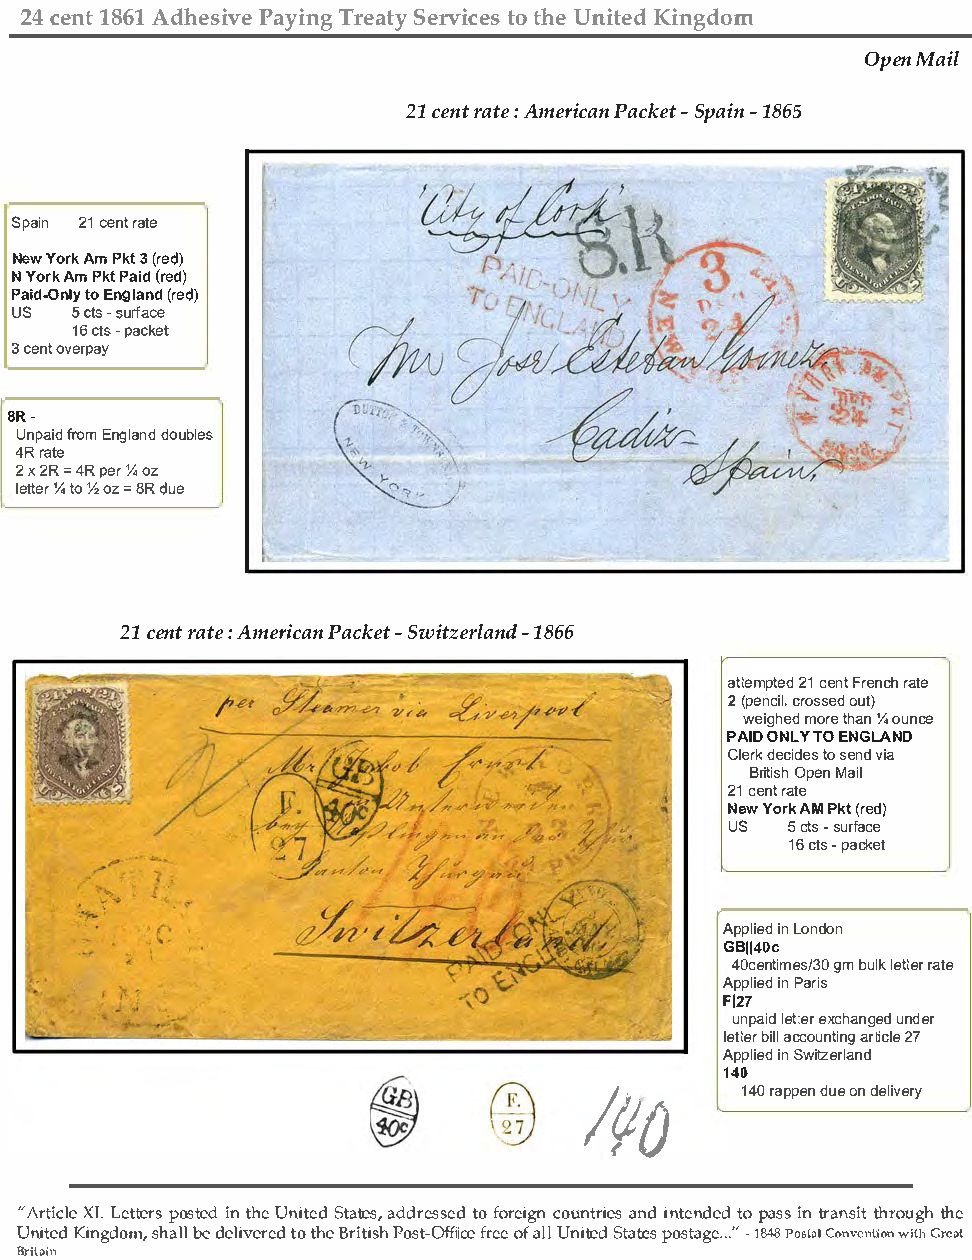 24 cent 1861 Adhesive Paying Treaty Services to the United Kingdom
Open Mail
21 cent rate : American Packet - Spain - 1865
Spain 21 cent rate
New York Am Pkt 3 (red)
N York Am Pkt Paid (red)
Paid-Only to England (red)
US 5 cts - surface
16 cts - packet
3 cent overpay
8R -
Unpaid from England doubles
4R rate
2 x 2R = 4R per ¼ oz
letter ¼ to ½ oz = 8R due
'City of Cork'
8.R
PAID-ONLY
TO ENGLAND
3
24
N. YORK AM. PKT
24
Mr Jose Esteban Gomez,
Cadiz
Spain,
NEW YORK
21 cent rate : American Packet - Switzerland - 1866
per Steamer via Liverpool
Mr Jakob Ernst
GB
40c
F.
27
Canton Thurgau
Switzerland
PAID-ONLY
TO ENGLAND
attempted 21 cent French rate
2 (pencil. crossed out)
weighed more than ¼ ounce
PAID ONLY TO ENGLAND
Clerk decides to send via
British Open Mail
21 cent rate
New York AM Pkt (red)
US 5 cts - surface
16 cts - packet
Applied in London
GB||40c
40centimes/30 gm bulk letter rate
Applied in Paris
F|27
unpaid letter exchanged under
letter bill accounting article 27
Applied in Switzerland
140
140 rappen due on delivery
GB
40c
F.
27
140
"Article XI. Letters posted in the United States, addressed to foreign countries and intended to pass in transit through the
United Kingdom, shall be delivered to the British Post-Office free of all United States postage..." - 1848 Postal Convention with Great
Britain